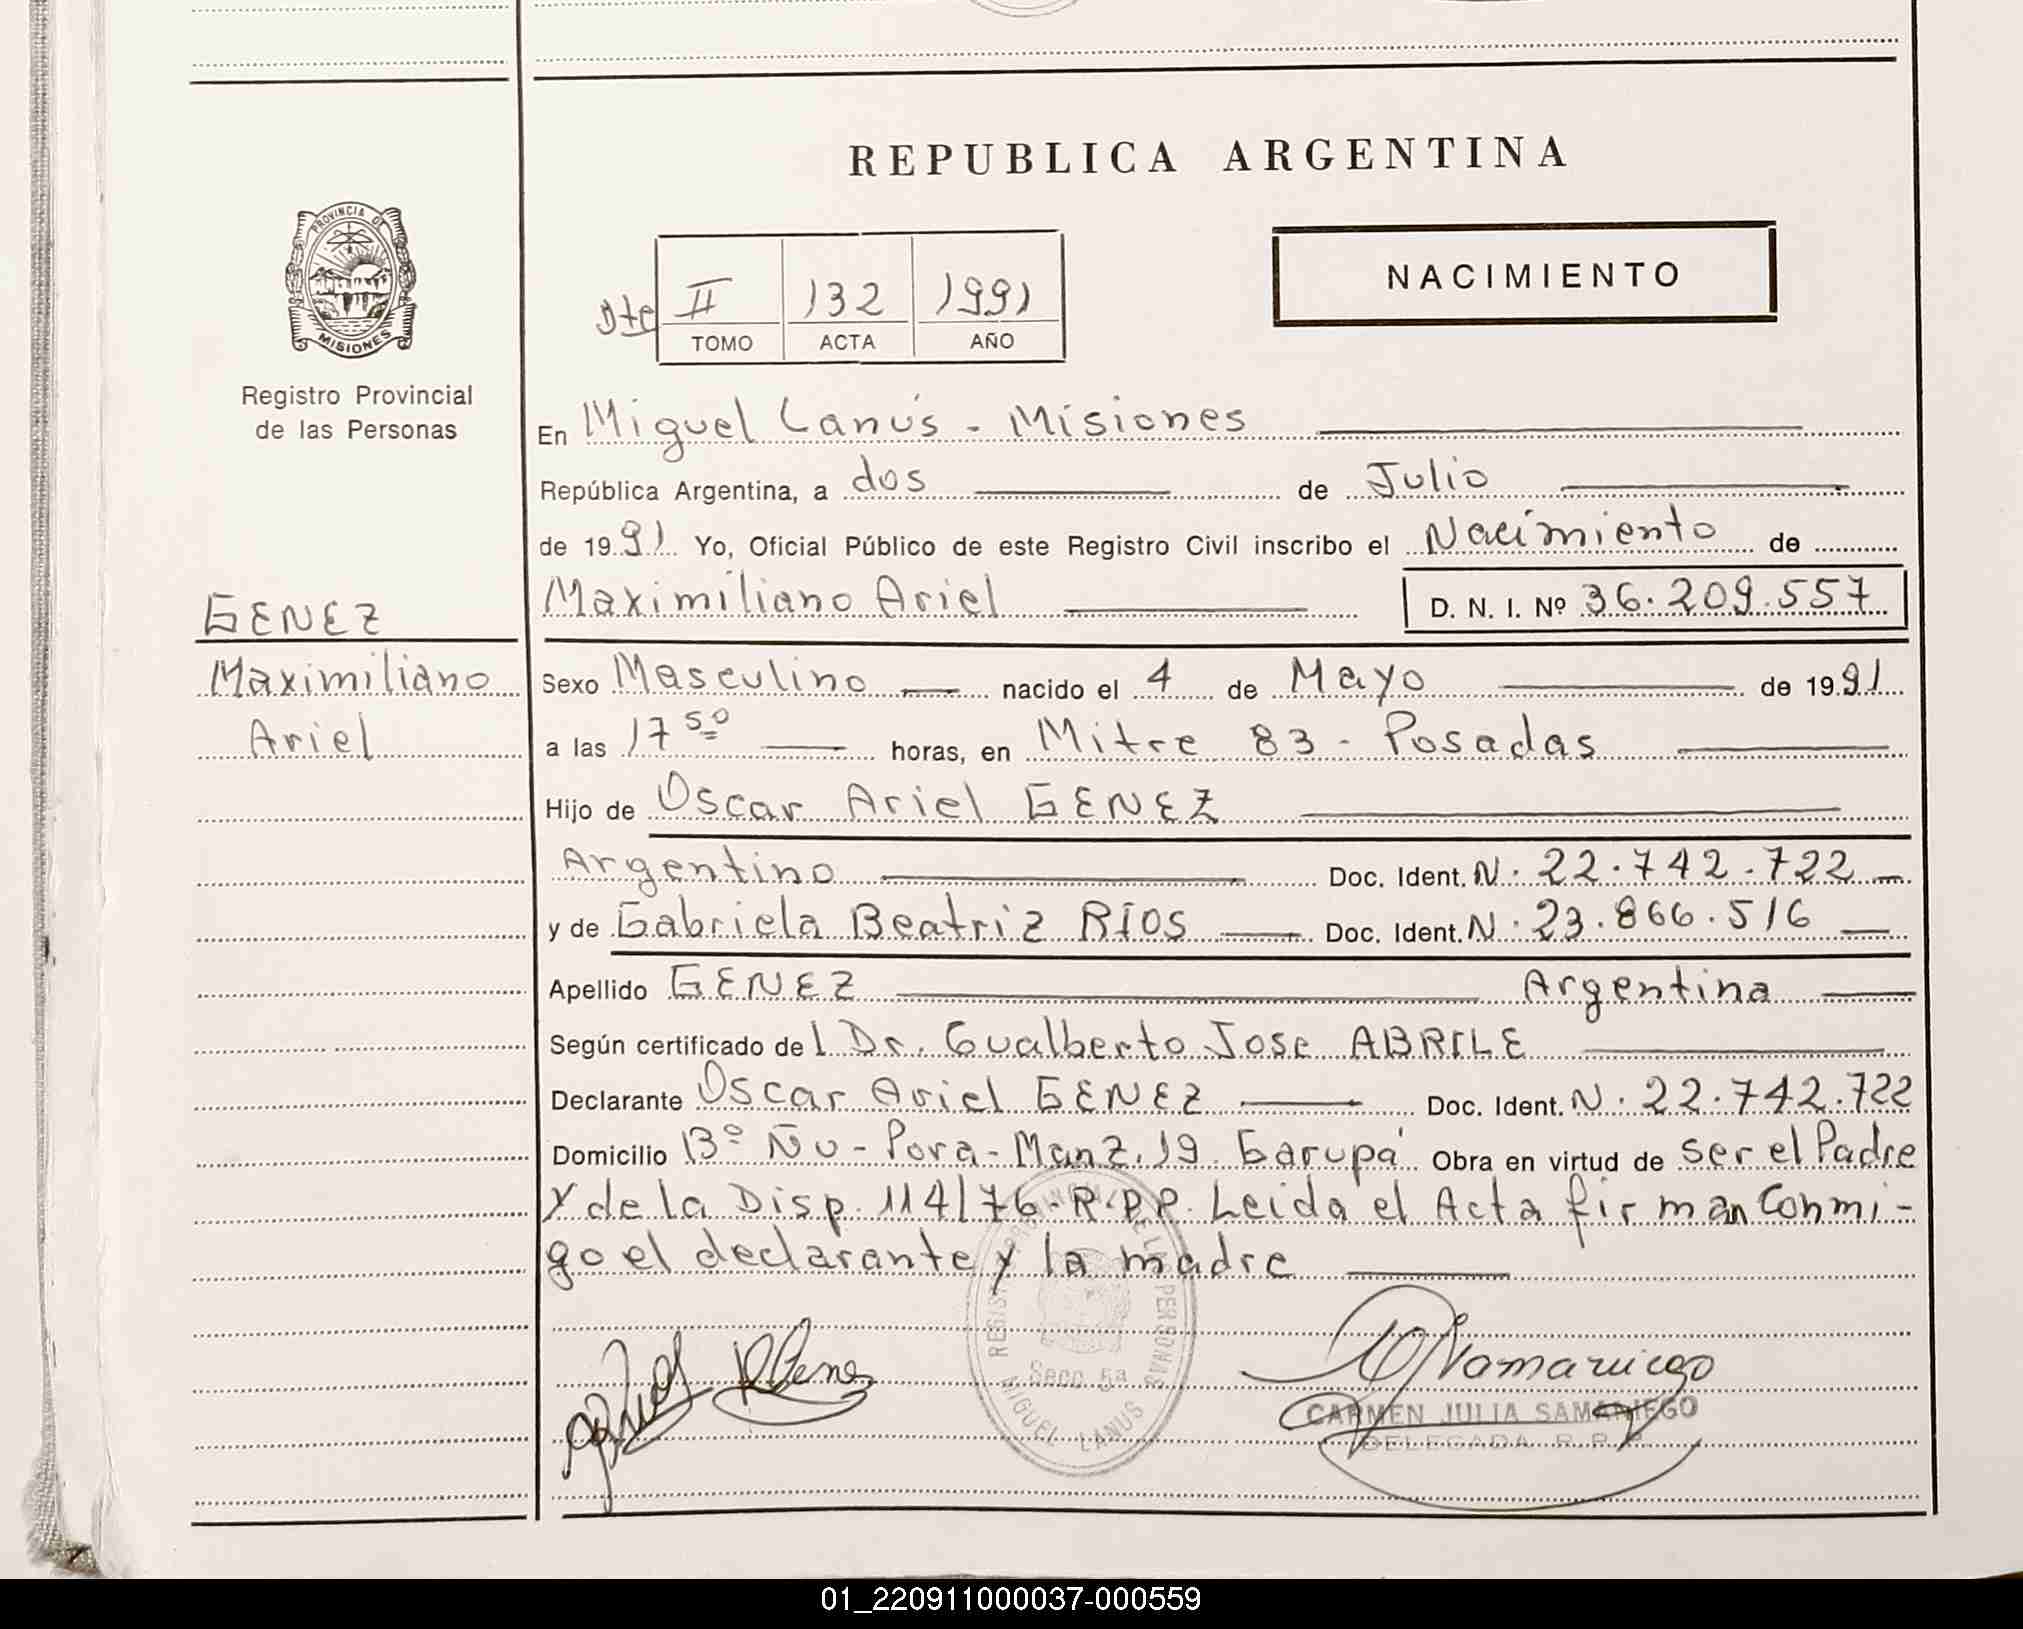 REPUBLICA ARGENTINA
PROVINCIA DE
MISIONES
Registro Provincial
de las Personas
NACIMIENTO
Dte II 132 1991
TOMO ACTA AÑO
En Miguel Lanús - Misiones
República Argentina, a dos de Julio
de 1991 Yo, Oficial Público de este Registro Civil inscribo el Nacimiento de
GENEZ
Maximiliano
Ariel
Maximiliano Ariel D. N. I. Nº 36.209.557
Sexo Masculino nacido el 4 de Mayo de 1991
a las 17 50 horas, en Mitre 83 - Posadas
Hijo de Oscar Ariel GENEZ
Argentino Doc. Ident. N. 22.742.722
y de Gabriela Beatriz RIOS Doc. Ident. N. 23.866.516
Apellido GENEZ Argentina
Según certificado del Dr. Gualberto Jose ABRILE
Declarante Oscar Ariel GENEZ Doc. Ident. N. 22.742.722
Domicilio Bº Ñu-Pora-Manz.19 Garupá Obra en virtud de ser el Padre
y de la Disp. 114/76-R.P.P. Leida el Acta firman Conmi-
go el declarante y la madre
REGISTRO PROVINCIAL DE LAS PERSONAS
Secc 5ª
MIGUEL LANUS
CARMEN JULIA SAMANIEGO
DELEGADA R.P.P.
01_220911000037-000559